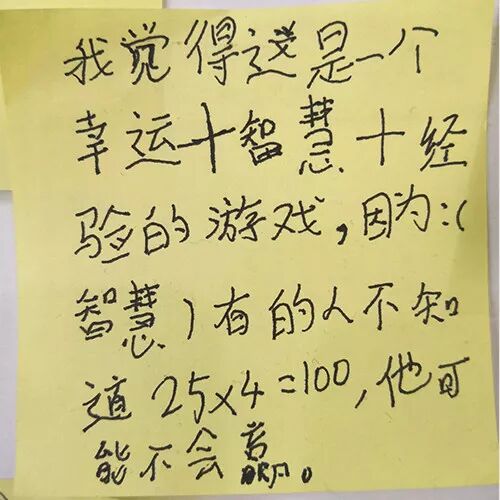 我觉得这是一个
幸运十智慧十经
验的游戏,因为:(
智慧)有的人不知
道25×4=100,他可
能不会赢。